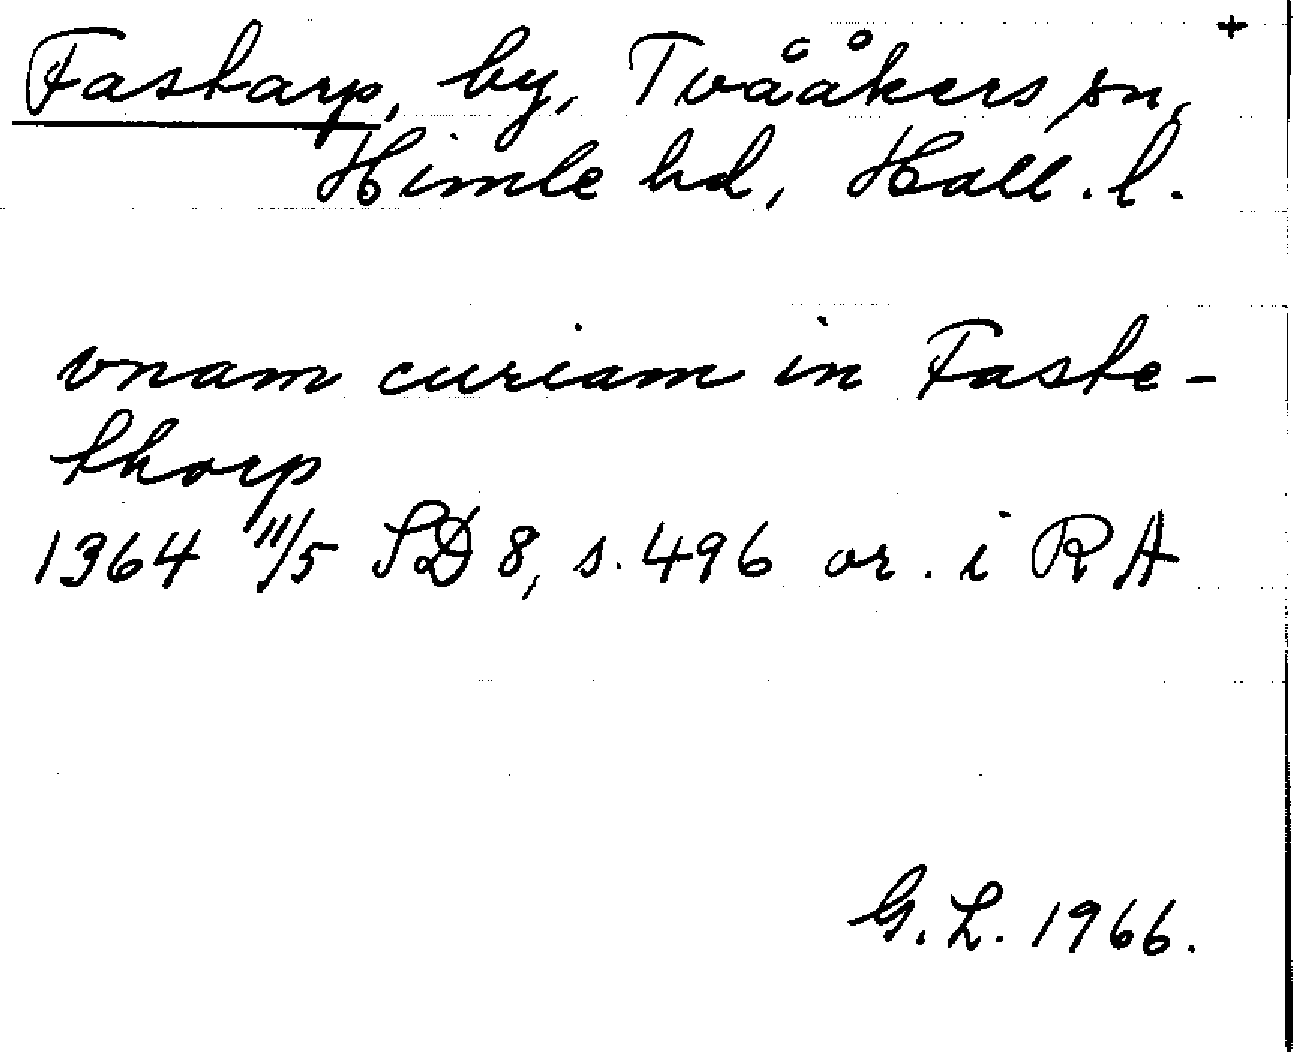 +
Fastarp, by, Tvååkers sn,
Himle hd, Hall. l.
vnam curiam in Faste-
thorp
1364 11/5 SD 8, s. 496 or. i RA
G. L. 1966.